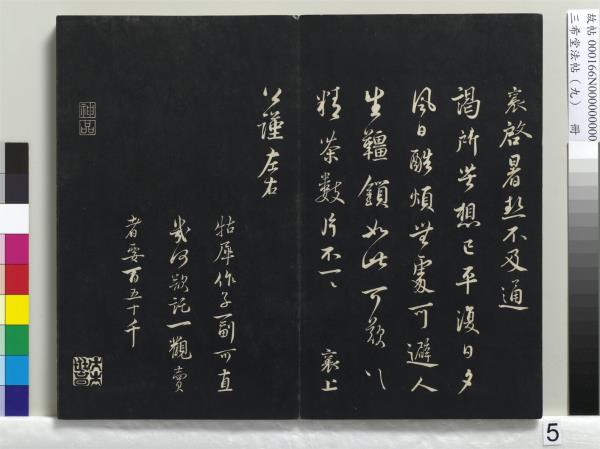 襄啓暑熱不及通
謁所苦想已平復日夕
風日酷煩無處可避人
生韁鎖如此可歎可歎
精茶數片不一一 襄上
公謹左右
牯犀作子一副可直
幾何欲託一觀賣
者要百五十千
神品
故帖 000166N000000000
三希堂法帖(九) 冊
5